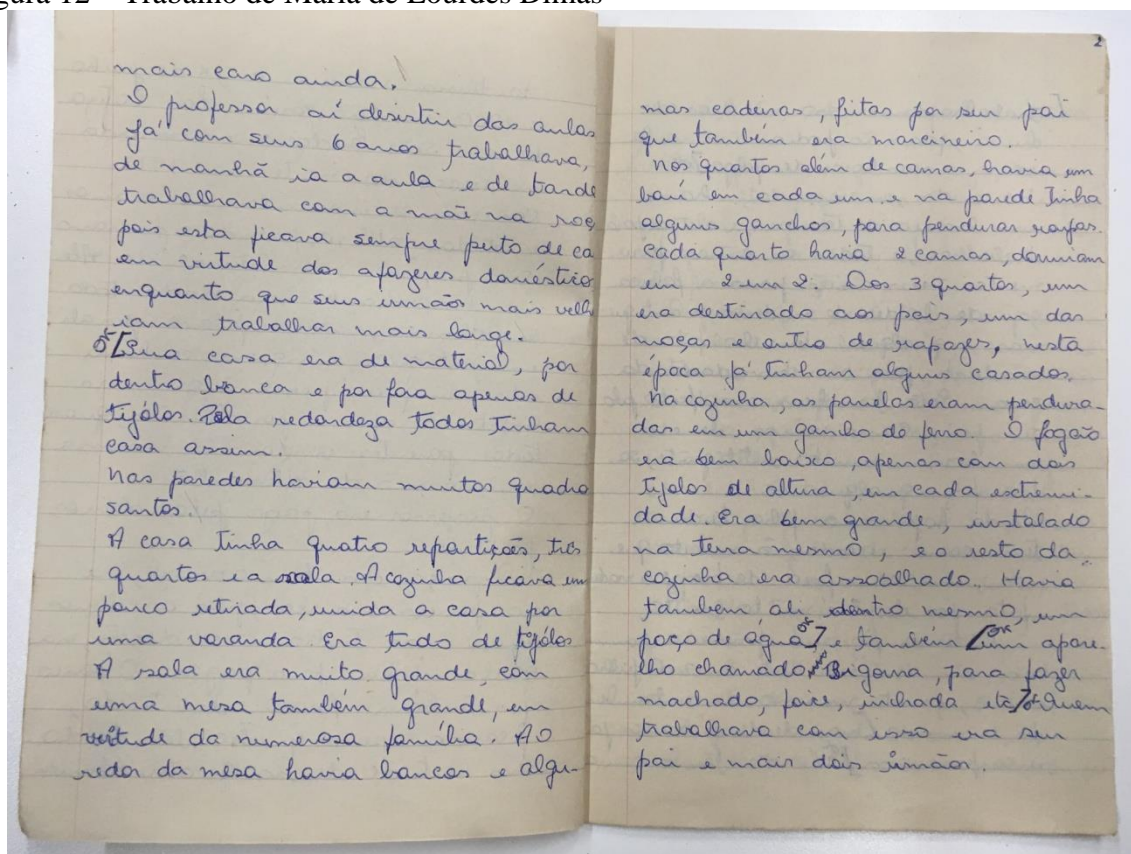 gura 12 – Trabalho de Maria de Lourdes Dimas
mais caro ainda.
O professor aí desistiu das aulas
Já com seus 6 anos trabalhava,
de manhã ia a aula e de tarde
trabalhava com a mãe na roç
pois esta ficava sempre perto de ca
em virtude dos afazeres doméstico
enquanto que seus irmãos mais velh
iam trabalhar mais longe.
OK [Sua casa era de material, por
dentro branca e por fora apenas de
tijólos. Pela redondeza todos tinham
casa assim.
Nas paredes haviam muitos quadro
santos.
A casa tinha quatro repartições, três
quartos e a sala. A cozinha ficava um
pouco retirada, unida a casa por
uma varanda. Era tudo de tijólos
A sala era muito grande, com
uma mesa também grande, em
virtude da numerosa família. Ao
redor da mesa havia bancos e algu-
2
mas cadeiras, feitas por seu pai
que também era marcineiro.
Nos quartos além de camas, havia um
baú em cada um e na parede tinha
alguns ganchos, para pendurar roupas.
Cada quarto havia 2 camas, dormiam
em 2 em 2. Dos 3 quartos, um
era destinado aos pais, um das
moças e outro de rapazes, nesta
época já tinham alguns casados.
Na cozinha, as panelas eram pendura-
das em um gancho de ferro. O fogão
era bem baixo, apenas com dois
tijolos de altura, em cada extremi-
dade. Era bem grande, instalado
na terra mesmo, e o resto da
cozinha era assoalhado. Havia
também ali dentro mesmo, um
poço de água OK] e também [OK um apare-
lho chamado Bigorna, para fazer
machado, foice, inchada etc] OK Quem
trabalhava com isso era seu
pai e mais dois irmãos.